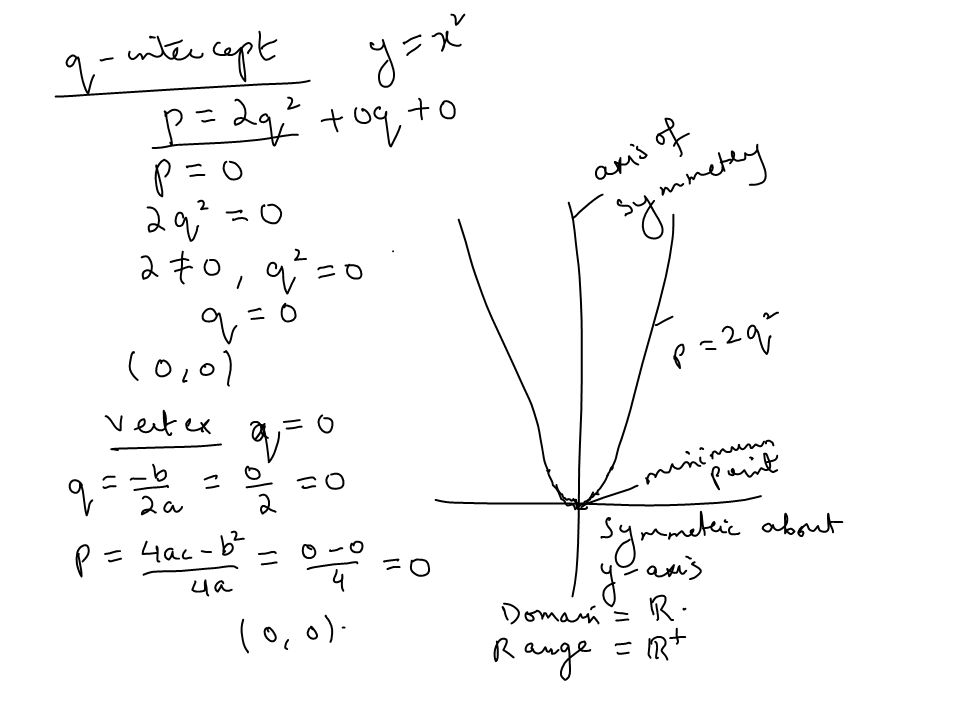 q-intercept y = x²
p = 2q² + 0q + 0
p = 0
2q² = 0
2 ≠ 0, q² = 0
q = 0
(0,0)
vertex q = 0
q = -b/2a = 0/2 = 0
P = 4ac - b²/4a = 0 - 0/4 = 0
(0, 0).
axis of
symmetry
p = 2q²
minimum
point
Symmetric about
y-axis
Domain = ℝ.
Range = ℝ⁺